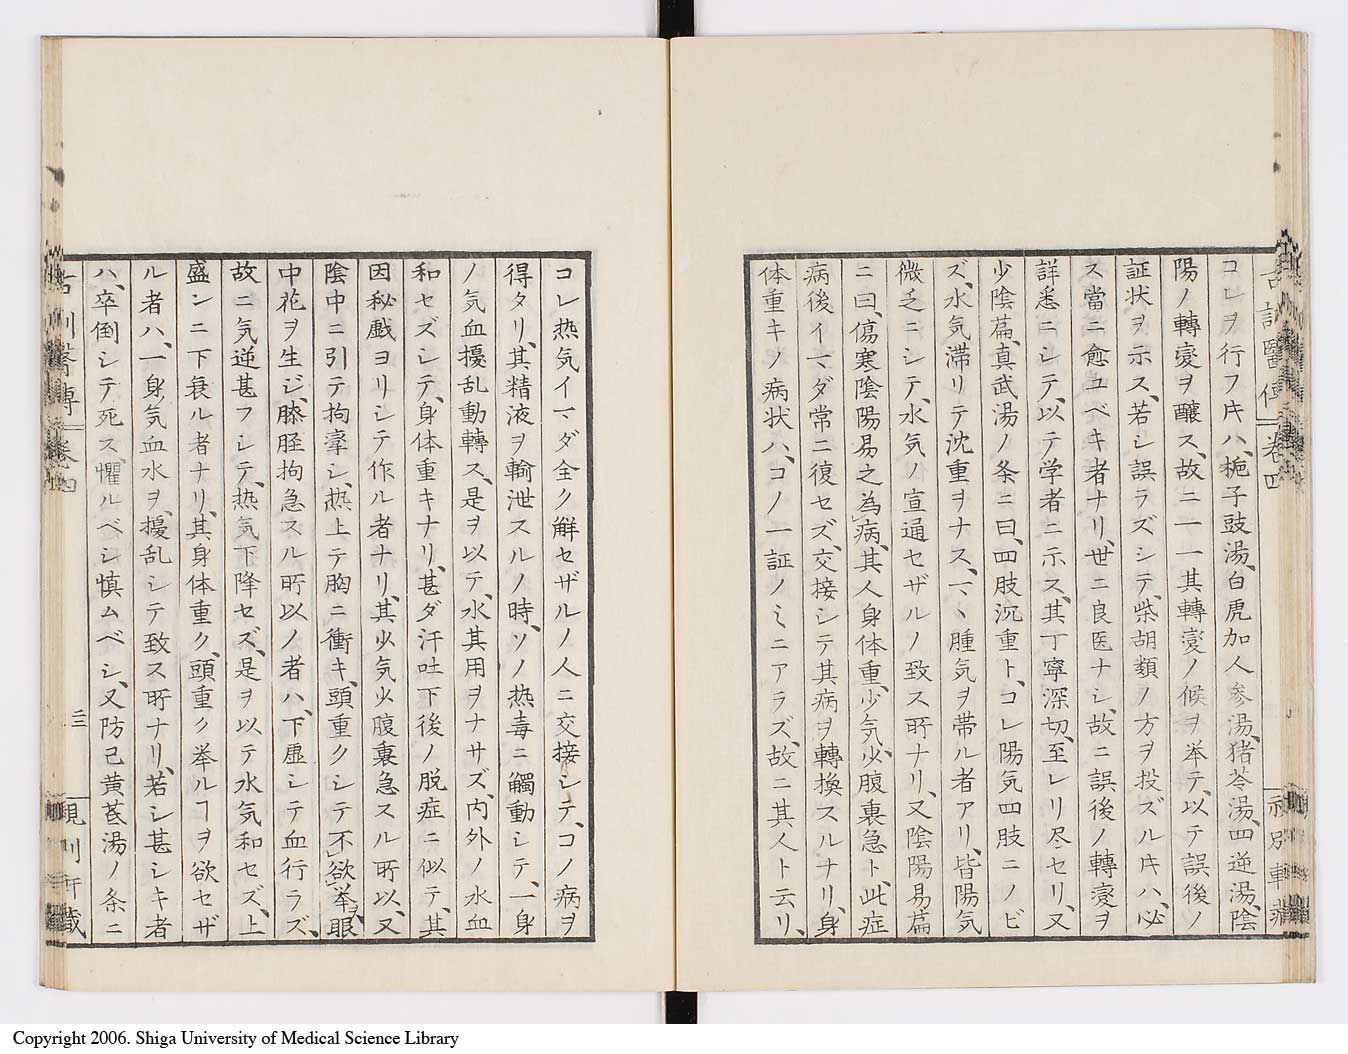 コレヲ行フ𪜈ハ、梔子豉湯、白虎加人參湯、猪苓湯、四逆湯、陰
陽ノ轉變ヲ醸ス、故ニ一一其轉變ノ候ヲ挙テ、以テ誤後ノ
証状ヲ示ス、若シ誤ラズシテ、柴胡類ノ方ヲ投ズル𪜈ハ、必
ス當ニ愈ユベキ者ナリ、世ニ良医ナシ、故ニ誤後ノ轉變ヲ
詳悉ニシテ、以テ学者ニ示ス、其丁寧深切、至レリ尽セリ、又
少陰萹、真武湯ノ条ニ曰、四肢沉重ト、コレ陽気四肢ニノビ
ズ、水気滞リテ沈、重ヲナス、丶丶腫気ヲ帯ル者アリ、皆陽気
微乏ニシテ、水気ノ宣通セザルノ致ス所ナリ、又陰陽易萹
ニ曰、傷寒陰陽易之為病、其人身体重、少気、少腹裏急ト、此症
病後イマダ常ニ復セズ、交接シテ其病ヲ轉換スルナリ、身
体重キノ病状ハ、コノ一証ノミニアラズ、故ニ其人ト云リ、
コレ热気イマダ全ク解セザルノ人ニ交接シテ、コノ病ヲ
得タリ、其精液ヲ輸泄スルノ時、ソノ热毒ニ觸動シテ、一身
ノ気血擾乱動轉ス、是ヲ以テ、水其用ヲナサズ、内外ノ水血
和セズシテ、身体重キナリ、甚ダ汗吐下後ノ脱症ニ似テ、其
因秘戯ヨリシテ作ル者ナリ、其少気少腹裏急スル所以、又
陰中ニ引テ拘攣シ、热上テ胸ニ衝キ、頭重クシテ不欲挙、眼
中花ヲ生ジ、膝脛拘急スル所以ノ者ハ、下虚シテ血行ラズ、
故ニ気逆甚フシテ、热気下降セズ、是ヲ以テ水気和セズ、上
盛ンニ下衰ル者ナリ、其身体重ク、頭重ク挙ルヿヲ欲セザ
ル者ハ、一身気血水ヲ、擾乱シテ致ス所ナリ、若シ甚シキ者
ハ、卒倒シテ死ス、懼ルベシ慎ムベシ、又防己黄芪湯ノ条ニ
卷四
三
Copyright 2006. Shiga University of Medical Science Library